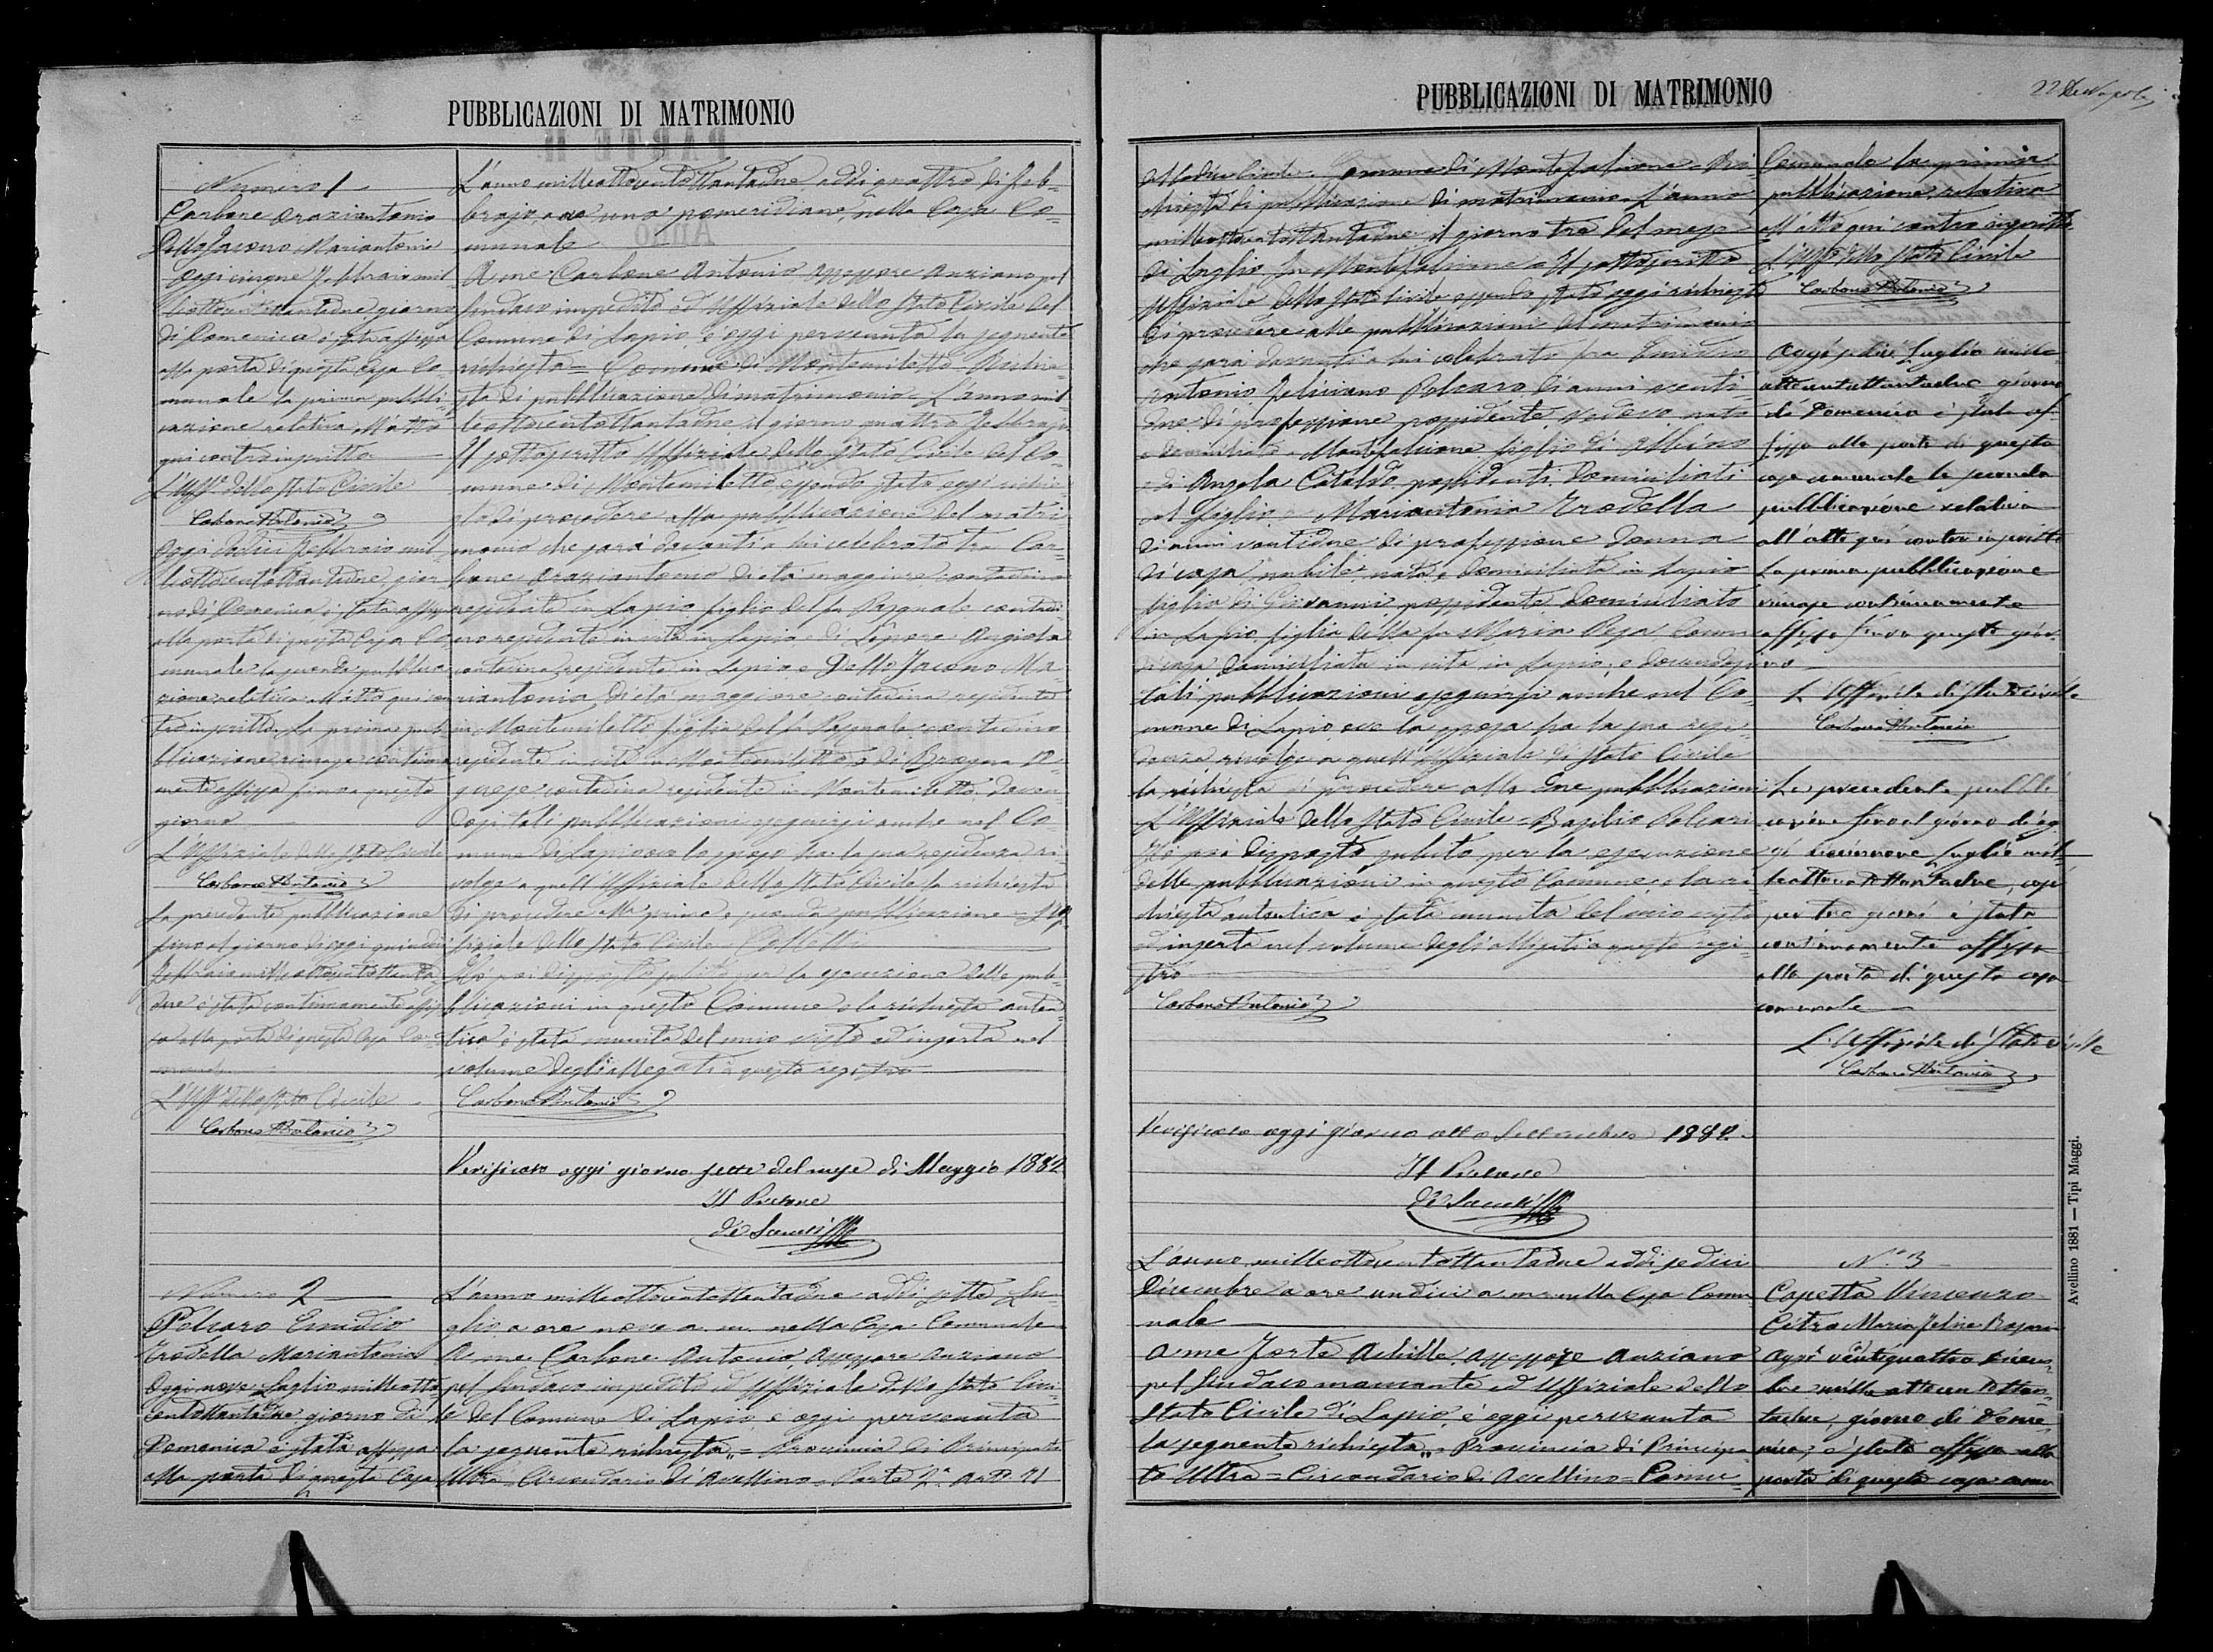 PUBBLICAZIONI DI MATRIMONIO
Numero 1
Carbone Oraziantonio
Dello Jacono Mariantonia
Oggi cinque Febbraio mil-
leottocentottantadue giorno
di Domenica è stata affissa
alla porta di questa Casa Co-
munale la prima pubbli-
cazione relativa all'atto
qui contro inscritto
L'Uff. dello Stato Civile
Carbone Antonio
Oggi dodici Febbraio mil-
leottocentottantadue, gior-
no di Domenica, è stata affissa
alla porta di questa Casa Co-
munale la seconda pubblica-
zione relativa all'atto qui con-
tro inscritto. La prima pub-
blicazione rimase continua-
mente affissa fino a questo
giorno
L'Uffiziale dello Stato Civile
Carbone Antonio
La precedente pubblicazione
fino al giorno di oggi quindici
Febbraio milleottocentottanta-
due è stata continuamente affis-
sa alla porta di questa Casa Com-
unale
L'Uff. dello Stato Civile
Carbone Antonio
L'anno milleottocentottantadue, addì quattro di Feb-
brajo, a ore una pomeridiane, nella Casa Co-
munale
A me Carbone Antonio Assessore Anziano pel
Sindaco impedito ed Uffiziale dello Stato Civile del
Comune di Lapio è oggi pervenuta la seguente
richiesta = Comune di Montemiletto = Richie-
sta di pubblicazione di matrimonio = L'anno mil-
leottocentottantadue il giorno quattro Febbrajo
Il sottoscritto Uffiziale dello Stato Civile del Co-
mune di Montemiletto essendo stato oggi richie-
sto di procedere alla pubblicazione del matri-
monio che sarà davanti a lui celebrato tra Car-
bone Oraziantonio di età maggiore contadino
residente in Lapio figlio del fu Pasquale contadi-
no residente in vita in Lapio e di Lepore Angiola
contadina residente in Lapio e Dello Jacono Ma-
riantonia di età maggiore contadina residente
in Montemiletto figlia del fu Pasquale contadino
residente in vita in Montemiletto e di
contadina residente in Montemiletto. Doven-
dosi tali pubblicazioni eseguirsi anche nel Co-
mune di Lapio ove lo sposo ha la sua residenza ri-
volge a quell'Uffiziale dello Stato Civile la richiesta
di procedere alla prima e seconda pubblicazione = L'Uf-
fiziale dello Stato Civile =
Ho poi disposto subito per la esecuzione delle pub-
blicazioni in questo Comune e la richiesta auten-
tica è stata munita del mio visto ed inserta nel
volume degli allegati a questo registro
Carbone Antonio
Verificato oggi giorno sette del mese di Maggio 1882
Il Pretore
Numero 2
Polcaro Emidio
Trodella Mariantonia
Oggi nove Luglio milleotto-
centottantadue giorno di
Domenica è stata affissa
alla porta di questa Casa
L'anno milleottocentottantadue addì sette Lu-
glio a ore nove a. m. nella Casa Comunale
A me Carbone Antonio, Assessore Anziano
pel Sindaco impedito ed Uffiziale dello Stato Civi-
le del Comune di Lapio è oggi pervenuta
la seguente richiesta = Provincia di Principato
Ultra = Circondario di Avellino = Parte 2.ª
PUBBLICAZIONI DI MATRIMONIO
Comune di Montefalcione = Ri-
chiesta di pubblicazione di matrimonio = L'anno
milleottocentottantadue il giorno tre del mese
di Luglio in Montefalcione = Il sottoscritto
Uffiziale dello Stato Civile essendo stato oggi richiesto
di procedere alle pubblicazioni del matrimonio
che sarà davanti a lui celebrato tra Emidio
Antonio Feliciano Polcaro di anni venti-
due di professione possidente, vedovo, nato
e domiciliato a Montefalcione figlio di
e di Angela Cataldo possidenti domiciliati
col figlio = Mariantonia Trodella
di anni ventidue di professione donna
di casa, nubile, nata e domiciliata in Lapio
figlia di Giovanni possidente domiciliato
in Lapio figlia della fu Maria Rosa donna
di casa domiciliata in vita in Lapio; e dovendosi
tali pubblicazioni eseguirsi anche nel Co-
mune di Lapio ove la sposa ha la sua resi-
denza rivolge a quell'Uffiziale di Stato Civile
la richiesta di procedere alle due pubblicazioni
L'Uffiziale dello Stato Civile = Basilio Polcari
Ho poi disposto subito per la esecuzione
delle pubblicazioni in questo Comune e la ri-
chiesta autentica è stata munita del mio visto
ed inserta nel volume degli allegati a questo regi-
stro
Carbone Antonio
Verificato oggi giorno otto Settembre 1882.
Il Pretore
Comunale la prima
pubblicazione, relativa
all'atto qui contro inscritto
L'Uff. dello Stato Civile
Carbone Antonio
Oggi sedici Luglio mille
ottocentottantadue giorno
di Domenica è stata af-
fissa alla porta di questa
casa comunale la seconda
pubblicazione relativa
all'atto qui contro inscritto
La prima pubblicazione
rimase continuamente
affissa fino a questo gior-
no
L'Uffiziale di Stato Civile
Carbone Antonio
La precedente pubbli-
cazione fino al giorno di og-
gi diciannove Luglio mil-
leottocentottantadue, cioè
per tre giorni è stata
continuamente affissa
alla porta di questa casa
comunale
L'Uffiziale di Stato Civile
Carbone Antonio
L'anno milleottocentottantadue addì sedici
Dicembre a ore undici a. m. nella Casa Comu-
nale
A me Forte Achille, Assessore Anziano
pel Sindaco mancante ed Uffiziale dello
Stato Civile di Lapio, è oggi pervenuta
la seguente richiesta = Provincia di Principa-
to Ultra = Circondario di Avellino = Comu-
N.º 3
Capetta Vincenzo
Citro Maria Felice
Oggi ventiquattro Dicem-
bre mille ottocentottan-
tadue, giorno di Dome-
nica, è stata affissa alla
porta di questa casa comu-
Avellino 1881 — Tipi Maggi.